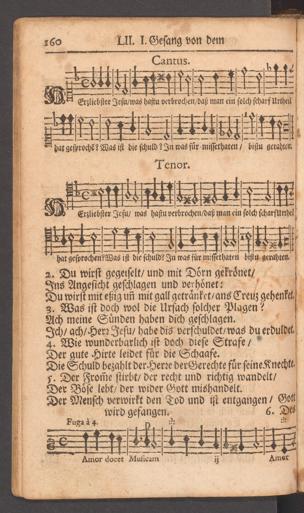 160 LII. I. Gesang von dem
Cantus.
HErzliebster Jesu/ was hastu verbrochen/ daß man ein solch scharf Urtheil
hat gesprochẽ? Was ist die schuld? In was für missethaten/ bistu gerahten.
Tenor.
HErzliebster Jesu/ was hastu verbrochen/ daß man ein solch scharf Urtheil
hat gesprochen? Was ist die schuld? In was für missethaten bistu gerahten.
2. Du wirst gegeiselt/ und mit Dörn gekrönet/
Ins Angesicht geschlagen und verhönet:
Du wirst mit essig uñ mit gall getränket/ ans Creuz gehenket.
3. Was ist doch wol die Ursach solcher Plagen?
Ach meine Sünden haben dich geschlagen.
Ich/ ach/ Herr Jesu/ habe diß verschuldet/ was du erduldet.
4. Wie wunderbarlich ist doch diese Strafe/
Der gute Hirte leidet für die Schaafe.
Die Schuld bezahlt der Herre der Gerechte für seine Knechte.
5. Der From̃e stirbt/ der recht und richtig wandelt/
Der Böse lebt/ der wider Gott mishandelt.
Der Mensch verwirkt den Tod und ist entgangen/ Gott
wird gefangen. 6. Des
Fuga à 4.
Amor docet Musicam ij Amor